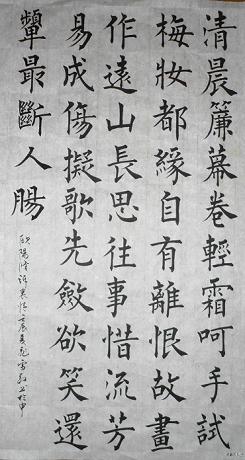 清晨簾幕卷輕霜呵手試
梅妝都緣自有離恨故畫
作遠山長思往事惜流芳
易成傷擬歌先斂欲笑還
顰最斷人腸
欧陽修訴衷情壬辰